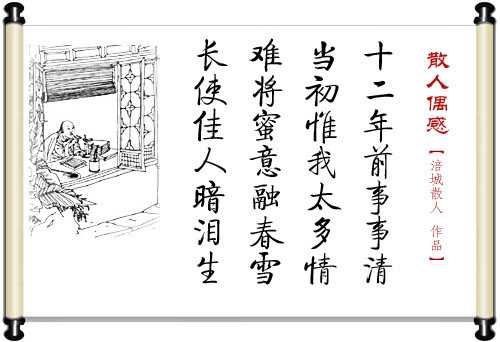 散人偶感
【涪城散人 作品】
十二年前事事清
当初惟我太多情
难将蜜意融春雪
长使佳人暗泪生